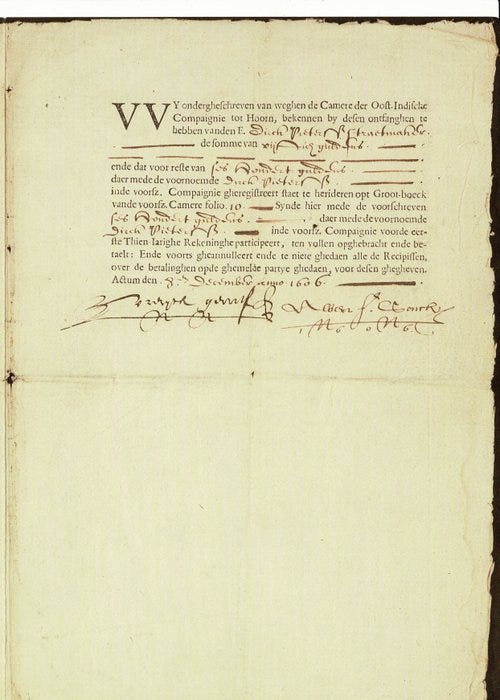 VVY ondergheschreven van weghen de Camere der Oost-Indische
Compaignie tot Hoorn, bekennen by desen ontfanghen te
hebben vanden E. Dirck Pietersz Straetmaker
de somme van guldens
ende dat voor reste van ses hondert guldens
daer mede de voornoemde Dirck Pietersz
inde voorsz. Compaignie gheregistreert staet te herideren opt Groot-boeck
vande voorsz. Camere folio. 10 Synde hier mede de voorschreven
ses hondert guldens daer mede de voornoemde
Dirck Pietersz inde voorsz. Compaignie voorde eer-
ste Thien-Iarighe Rekeninghe participeert, ten vollen opghebracht ende be-
taelt: Ende voorts gheannulleert ende te niete ghedaen alle de Recipissen,
over de betalinghen opde ghemelde partye ghedaen, voor desen ghegheven.
Actum den 9en December anno 1606.
1606